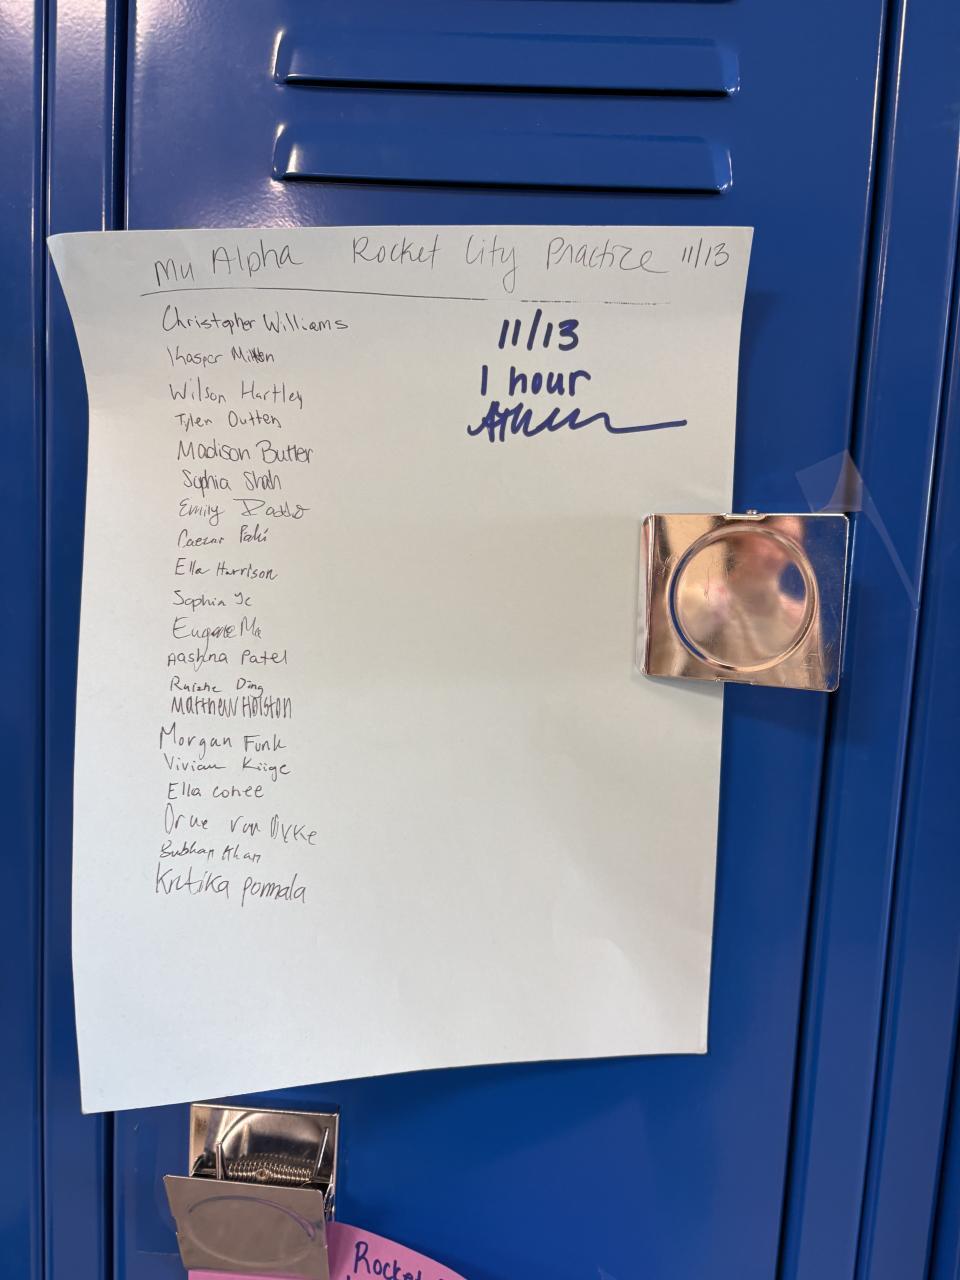 Mu Alpha Rocket City Practice 11/13
Christopher Williams
11/13
Kasper Mitten
1 hour
Wilson Hartley
Tyler Outten
Madison Butler
Sophia Shah
Emily
Caesar
Ella Harrison
Sophia Ye
Eugene Ma
Aashna Patel
Ruizhe Ding
Matthew Holston
Morgan Funk
Vivian Kiige
Ella Cohee
Van Dyke
Subhan Khan
Krutika ponnala
Rocket